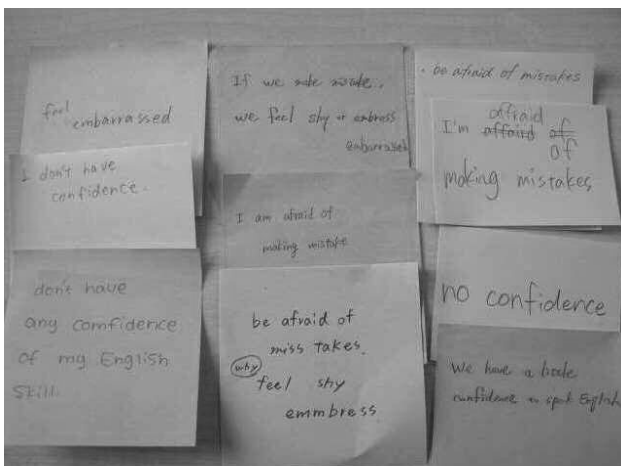 feel
embarrassed
I don't have
confidence.
don't have
any comfidence
of my English
skill.
If we make mistake,
we feel shy or embress
embarrassed
I am afraid of
making mistake
be afraid of
miss takes.
why
feel shy
emmbress
. be afraid of mistakes
affraid
I'm affaird of
of
making mistakes
no confidence
We have a
confidence English